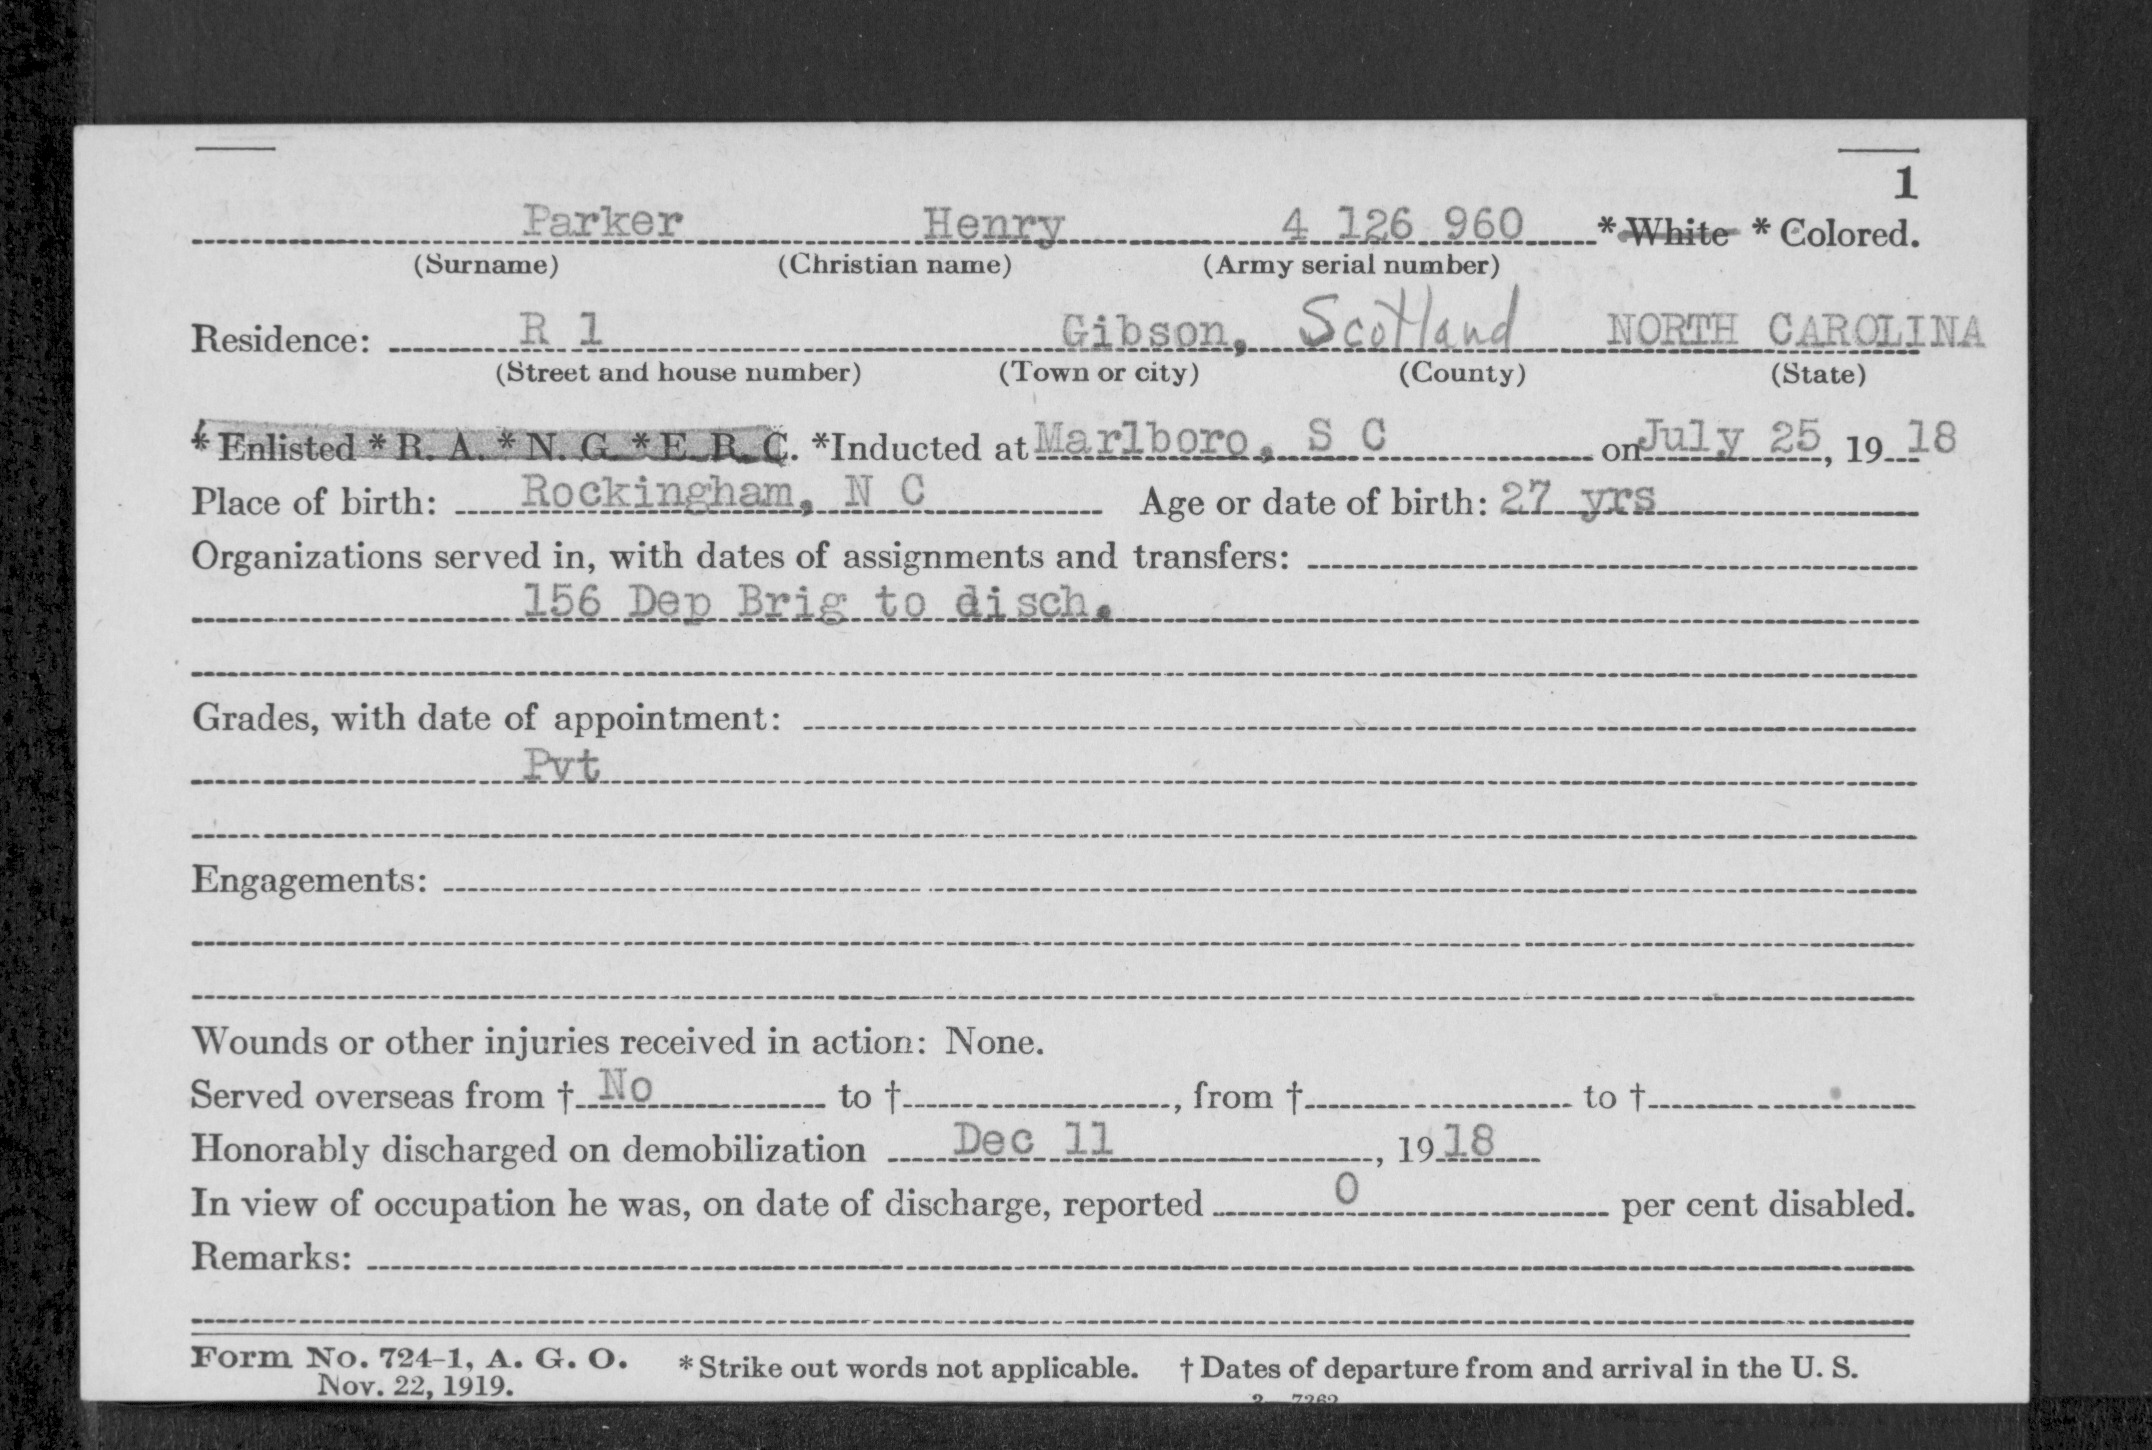 1
Parker Henry 4 126 960 * White * Colored.
(Surname) (Christian name) (Army serial number)
Residence: R 1 Gibson, Scotland NORTH CAROLINA
(Street and house number) (Town or city) (County) (State)
* Enlisted * R. A. * N. G. * E. R. C. *Inducted at Marlboro, S C on July 25, 19 18
Place of birth: Rockingham, N C Age or date of birth: 27 yrs
Organizations served in, with dates of assignments and transfers:
156 Dep Brig to disch.
Grades, with date of appointment:
Pvt
Engagements:
Wounds or other injuries received in action: None.
Served overseas from † No to †, from † to †
Honorably discharged on demobilization Dec 11, 19 18
In view of occupation he was, on date of discharge, reported 0 per cent disabled.
Remarks:
Form No. 724-1, A. G. O. * Strike out words not applicable. † Dates of departure from and arrival in the U. S.
Nov. 22, 1919.